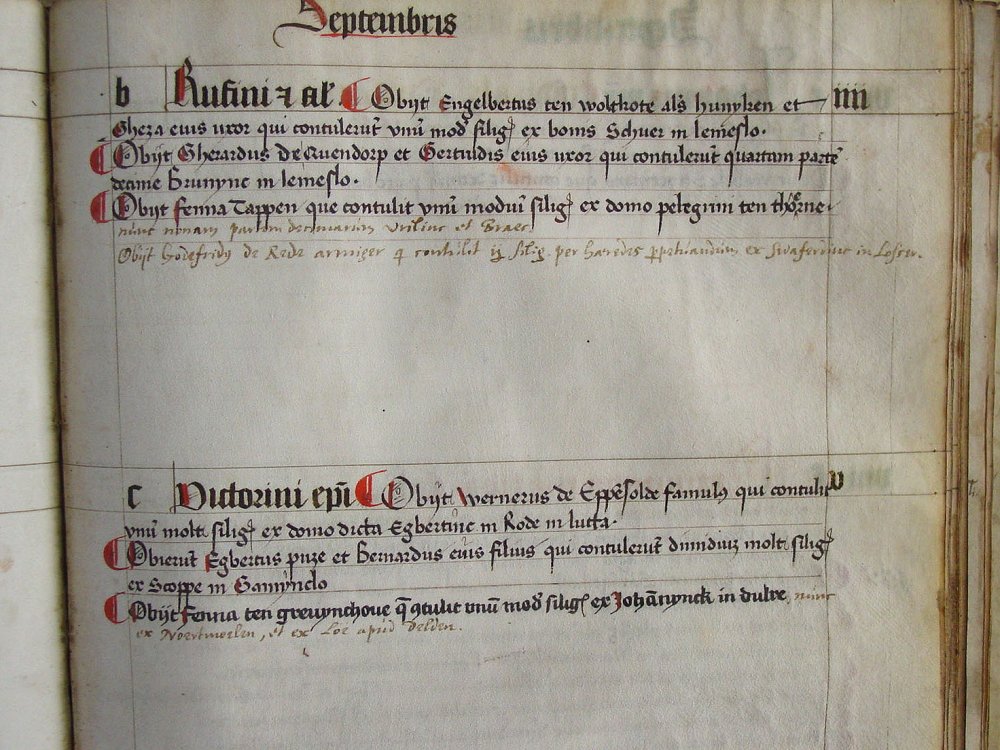 Septembris
b Rufini ⁊ al. Obijt Engelbertus ten wolthote als̄ hunyken et iiii
Gheza eius uxor qui contulerūt vnū mod̄ siliḡ ex bonis Schuer in lemeslo.
Obijt Gherardus de Quendorp et Gertrudis eius uxor qui contulerūt quartam partē
decime Brunync in lemeslo.
Obijt fenna Tappen que contulit vnū modiū siliḡ ex domo pelegrini ten thörne
nunc nonam partem decimarum et Braec
Obijt Godefridus de Rede armiger q contulit ij silig. per haeredes ꝑpetuandum ex Swaferinc in Losser.
c Victorini ep̄i Obijt Wernerus de Eppesolde famulus qui contulit v
vnū molt siliḡ ex domo dicta Egbertinc in Rode in lutta.
Obierūt Egbertus puze et Bernardus eius filius qui contulerūt dimidiuʒ molt siliḡ
ex Scoppe in Gamynclo
Obijt fenna ten grewynchoue q̄ ꝯtulit vnū mod̄ siliḡ ex Johānynck in dulre, nunc
ex Noertmoelen, et ex Loe apud Delden.